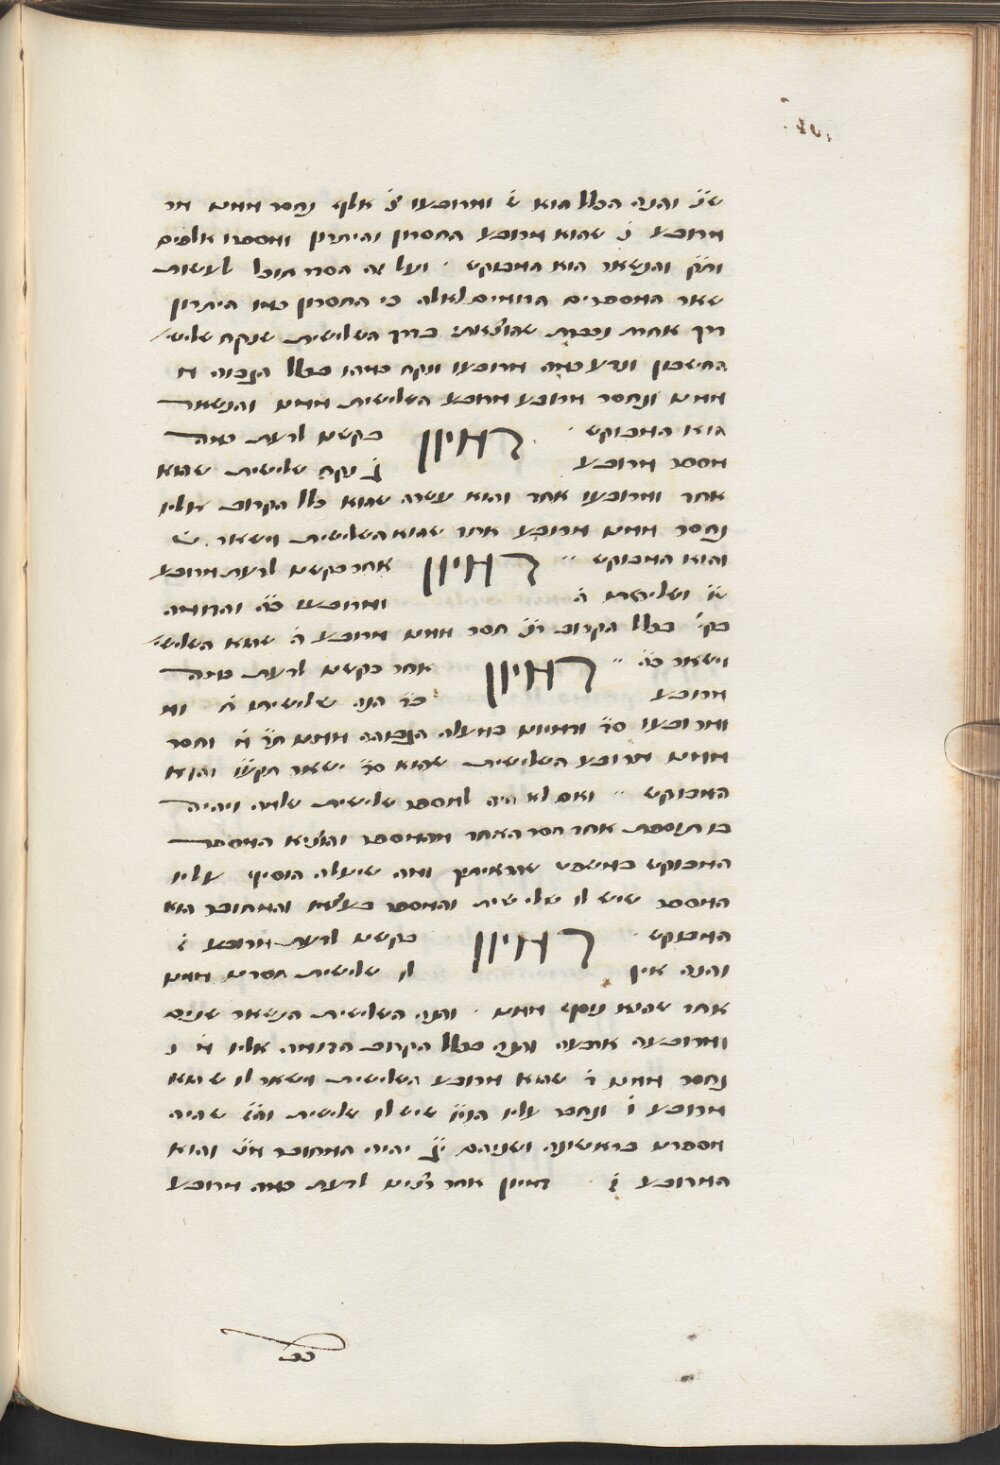 והנה הכלל הוא ש ומרובעו צ אלף נחסר ממנו
מרובע נ שהוא מרובע החסרון והיתרון ומספרו אלפים
והנשאר הוא המבוקש ועל זה הדרך תוכל לעשות
שאר המספרים הדומים לאלה כי החסרון כמו היתרון
דרך אחרת נכבדת שהוצאתי כדרך השלישית שנקח שלישי
החשבון ונדע כמה מרובעו ונקח כמהו בכלל הגבוה
ממנו ונחסר מרובע השלישית ממנו והנשאר
הוא המבוקש דמיון בקשנו לדעת כמה
מספר מרובע נקח שלישית שהוא
אחד ומרובעו אחד והוא עשרה שהוא כלל הקרוב אליו
נחסר ממנו מרובע אחד שהוא השלישית וישאר ט
והוא המבוקש דמיון אחר בקשנו לדעת מרובע
ושלישיתו ה ומרובעו כה והדומה
בכלל הקרוב רנ חסר ממנו מרובע ה שהוא השלישי
וישאר דמיון אחר בקשנו לדעת כמה
מרובע כד הנה שלישיתו ח
ומרובעו סד והדמיון במעלה הגבוהה ממנו תר מ וחסר
ממנו מרובע השלישית שהוא סד ישאר תקעו והוא
המבוקש ואם לא היה למספר שלישית שלמה ויהיה
בו תוספת אחד חסר האחד מהמספר והוציא המספר
המבוקש כמשפט שהראיתיך ומה שיעלה הוסיף עליו
המספר שיש לו שלישית והמספר בעצמו והמחובר הוא
המבוקש דמיון בקשנו לדעת מרובע ז
והנה אין לו שלישית חסרנו ממנו
אחד שהוא נוסף ממנו והנה השלישית הנשאר שנים
ומרובעה ארבעה והנה בכלל הקרוב הדומה אליו מ
נחסר ממנו ד שהוא מרובע השלישית וישאר לו שהוא
מרובע ו ונחבר עליו שיש לו שלישית שהיה
מספרם בראשונה ושניהם יג יהיה המחובר מט והוא
המרובע ז דמיון אחר רצינו לדעת כמה מרובע